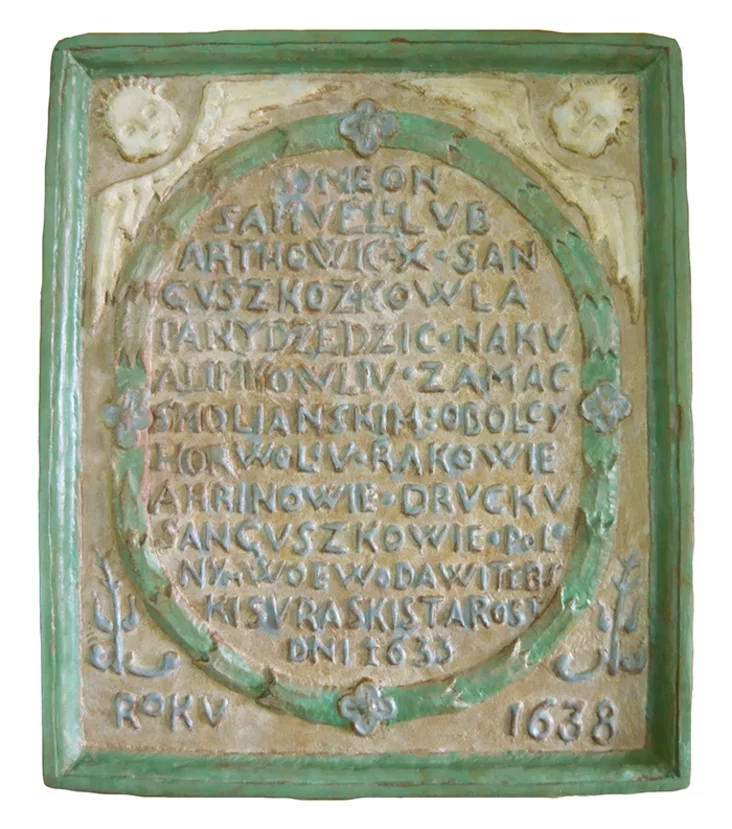 SYMEON
SAMVEL LVB
ARTHOWIC·X·SAN
GVSZKOZKOWLA
PANYDZEDZIC·NAKV
ZAMAC
SMOLIANSKIM:OBOLCY
HORWOLIV·RAKOWIE
AHRINOWIE·DRVCKV
SANGVSZKOWIE·POL
NY·WOEWODAWITEBS
KISVRASKISTAROST
DNI 1633
ROKV 1638